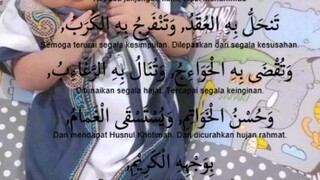 تَنْحَلُّ بِهِ الْعُقَدُ, وَتَنْفَرِجُ بِهِ الْكُرَبُ,
Semoga terurai segala kesimpulan. Dilepaskan dari segala kesusahan.
وَتُقْضَى بِهِ الْحَوَائِجُ, وَتُنَالُ بِهِ الرَّغَائِبُ,
Ditunaikan segala hajat. Tercapai segala keinginan.
وَحُسْنُ الْخَوَاتِمِ, وَيُسْتَسْقَى الْغَمَامُ,
Dan mendapat Husnul Khotimah. Dan dicurahkan hujan rahmat.
بِوَجْهِهِ الْكَرِيْمِ,